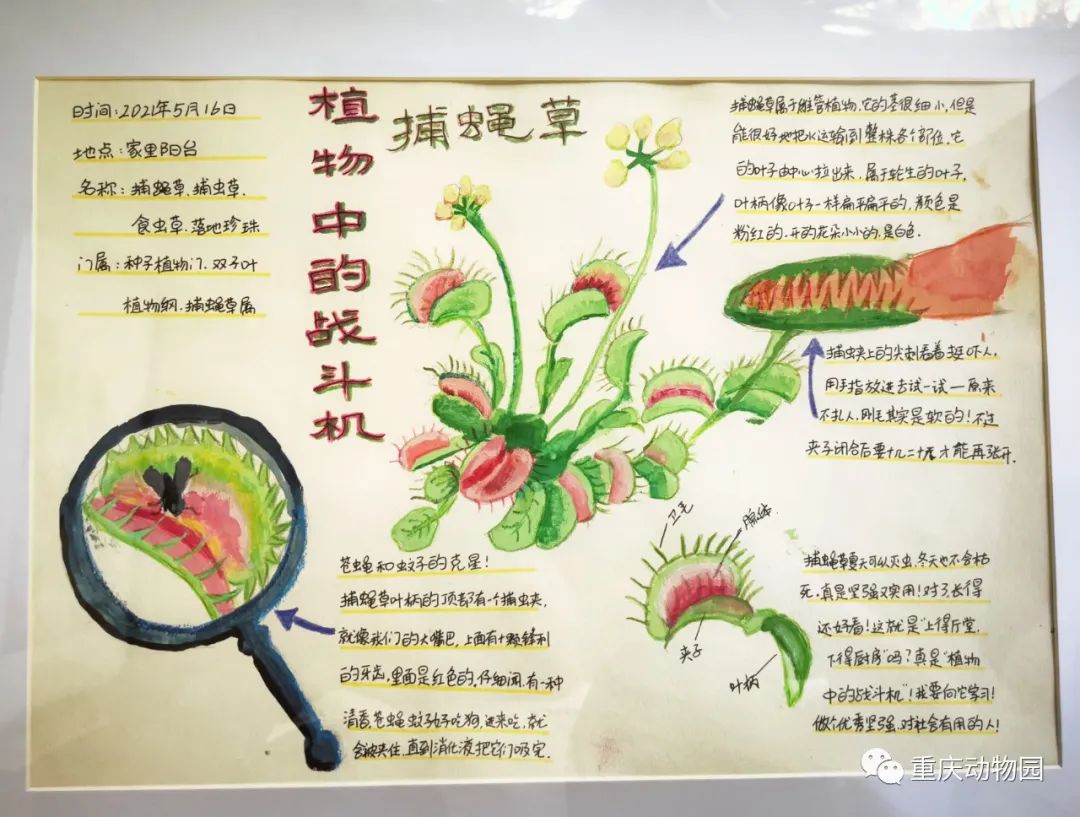 时间:2021年5月16日
地点:家里阳台
名称:捕蝇草、捕虫草、
食虫草、落地珍珠
门属:种子植物门、双子叶
植物纲、捕蝇草属
植物中的战斗机
捕蝇草
捕蝇草属于维管植物,它的茎很细小,但是
能很好地把水运输到整株各个部位,它
的叶子由中心拉出来,属于轮生的叶子,
叶柄像叶子一样扁平扁平的,颜色是
粉红的,开的花朵小小的,是白色.
捕虫夹上的尖刺看着挺吓人,
用手指放进去试一试——原来
不扎人,刚毛其实是软的!不过
夹子闭合后要十几二十天才能再张开.
苍蝇和蚊子的克星!
捕蝇草叶柄的顶部有一个捕虫夹,
就像我们的大嘴巴,上面有十颗锋利
的牙齿,里面是红色的,仔细闻,有一种
清香,苍蝇蚊子进来吃,就
会被夹住,直到消化液把它们吸完.
卫毛
腺体
夹子
叶柄
捕蝇草夏天可以灭虫,冬天也不会枯
死,真是坚强又实用!对了长得
还好看!这就是"上得厅堂,
下得厨房"吗?真是"植物
中的战斗机"!我要向它学习!
做个优秀坚强,对社会有用的人!
重庆动物园